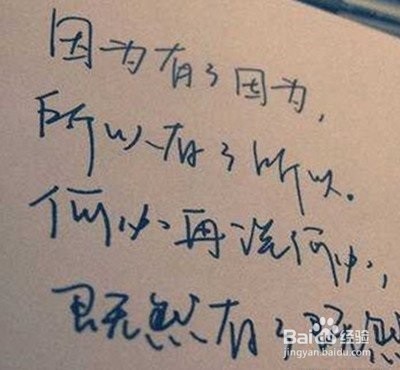 因为有了因为，
所以有了所以。
何必再说何必，
既然有了既然
Baidu经验
jingyan.baidu.com